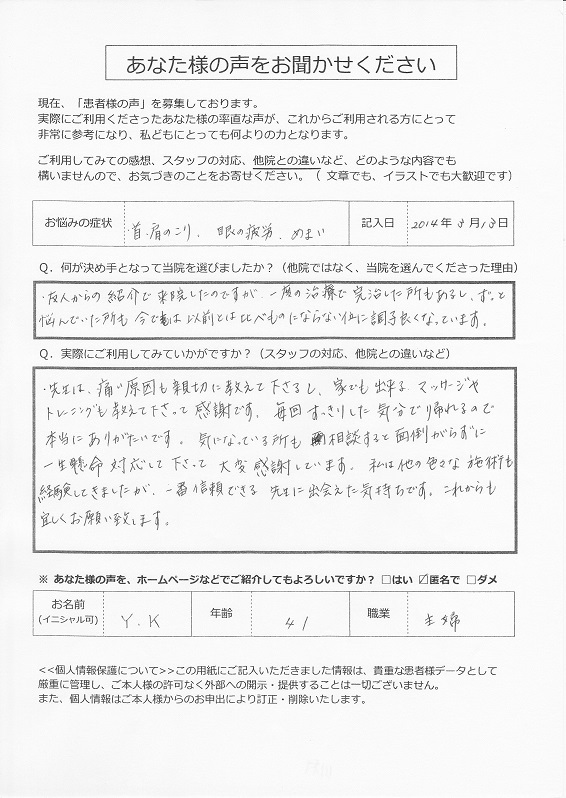 あなた様の声をお聞かせください
現在、「患者様の声」を募集しております。
実際にご利用くださったあなた様の率直な声が、これからご利用される方にとって
非常に参考になり、私どもにとっても何よりの力となります。
ご利用してみての感想、スタッフの対応、他院との違いなど、どのような内容でも
構いませんので、お気づきのことをお寄せください。（ 文章でも、イラストでも大歓迎です）
お悩みの症状 ・首・肩のこり、眼の疲労、めまい 記入日 2014年3月13日
Ｑ．何が決め手となって当院を選びましたか？（他院ではなく、当院を選んでくださった理由）
・友人からの紹介で来院したのですが、一度の治療で完治した所もあるし、ずっと
悩んでいた所も今では以前とは比べものにならない位に調子良くなっています。
Ｑ．実際にご利用してみていかがですか？（スタッフの対応、他院との違いなど）
・先生は、痛い原因も親切に教えて下さるし、家でも出来るマッサージや
トレーニングも教えて下さって感謝です。毎回すっきりした気分で帰れるので
本当にありがたいです。気になっている所も相談すると面倒がらずに
一生懸命対応して下さって大変感謝しています。私は他の色々な施術も
経験してきましたが、一番信頼できる先生に出会えた気持ちです。これからも
宜しくお願い致します。
※ あなた様の声を、ホームページなどでご紹介してもよろしいですか？ □はい ☑匿名で □ダメ
お名前 Y.K 年齢 41 職業 主婦
(イニシャル可)
<<個人情報保護について>>この用紙にご記入いただきました情報は、貴重な患者様データとして
厳重に管理し、ご本人様の許可なく外部への開示・提供することは一切ございません。
また、個人情報はご本人様からのお申出により訂正・削除いたします。